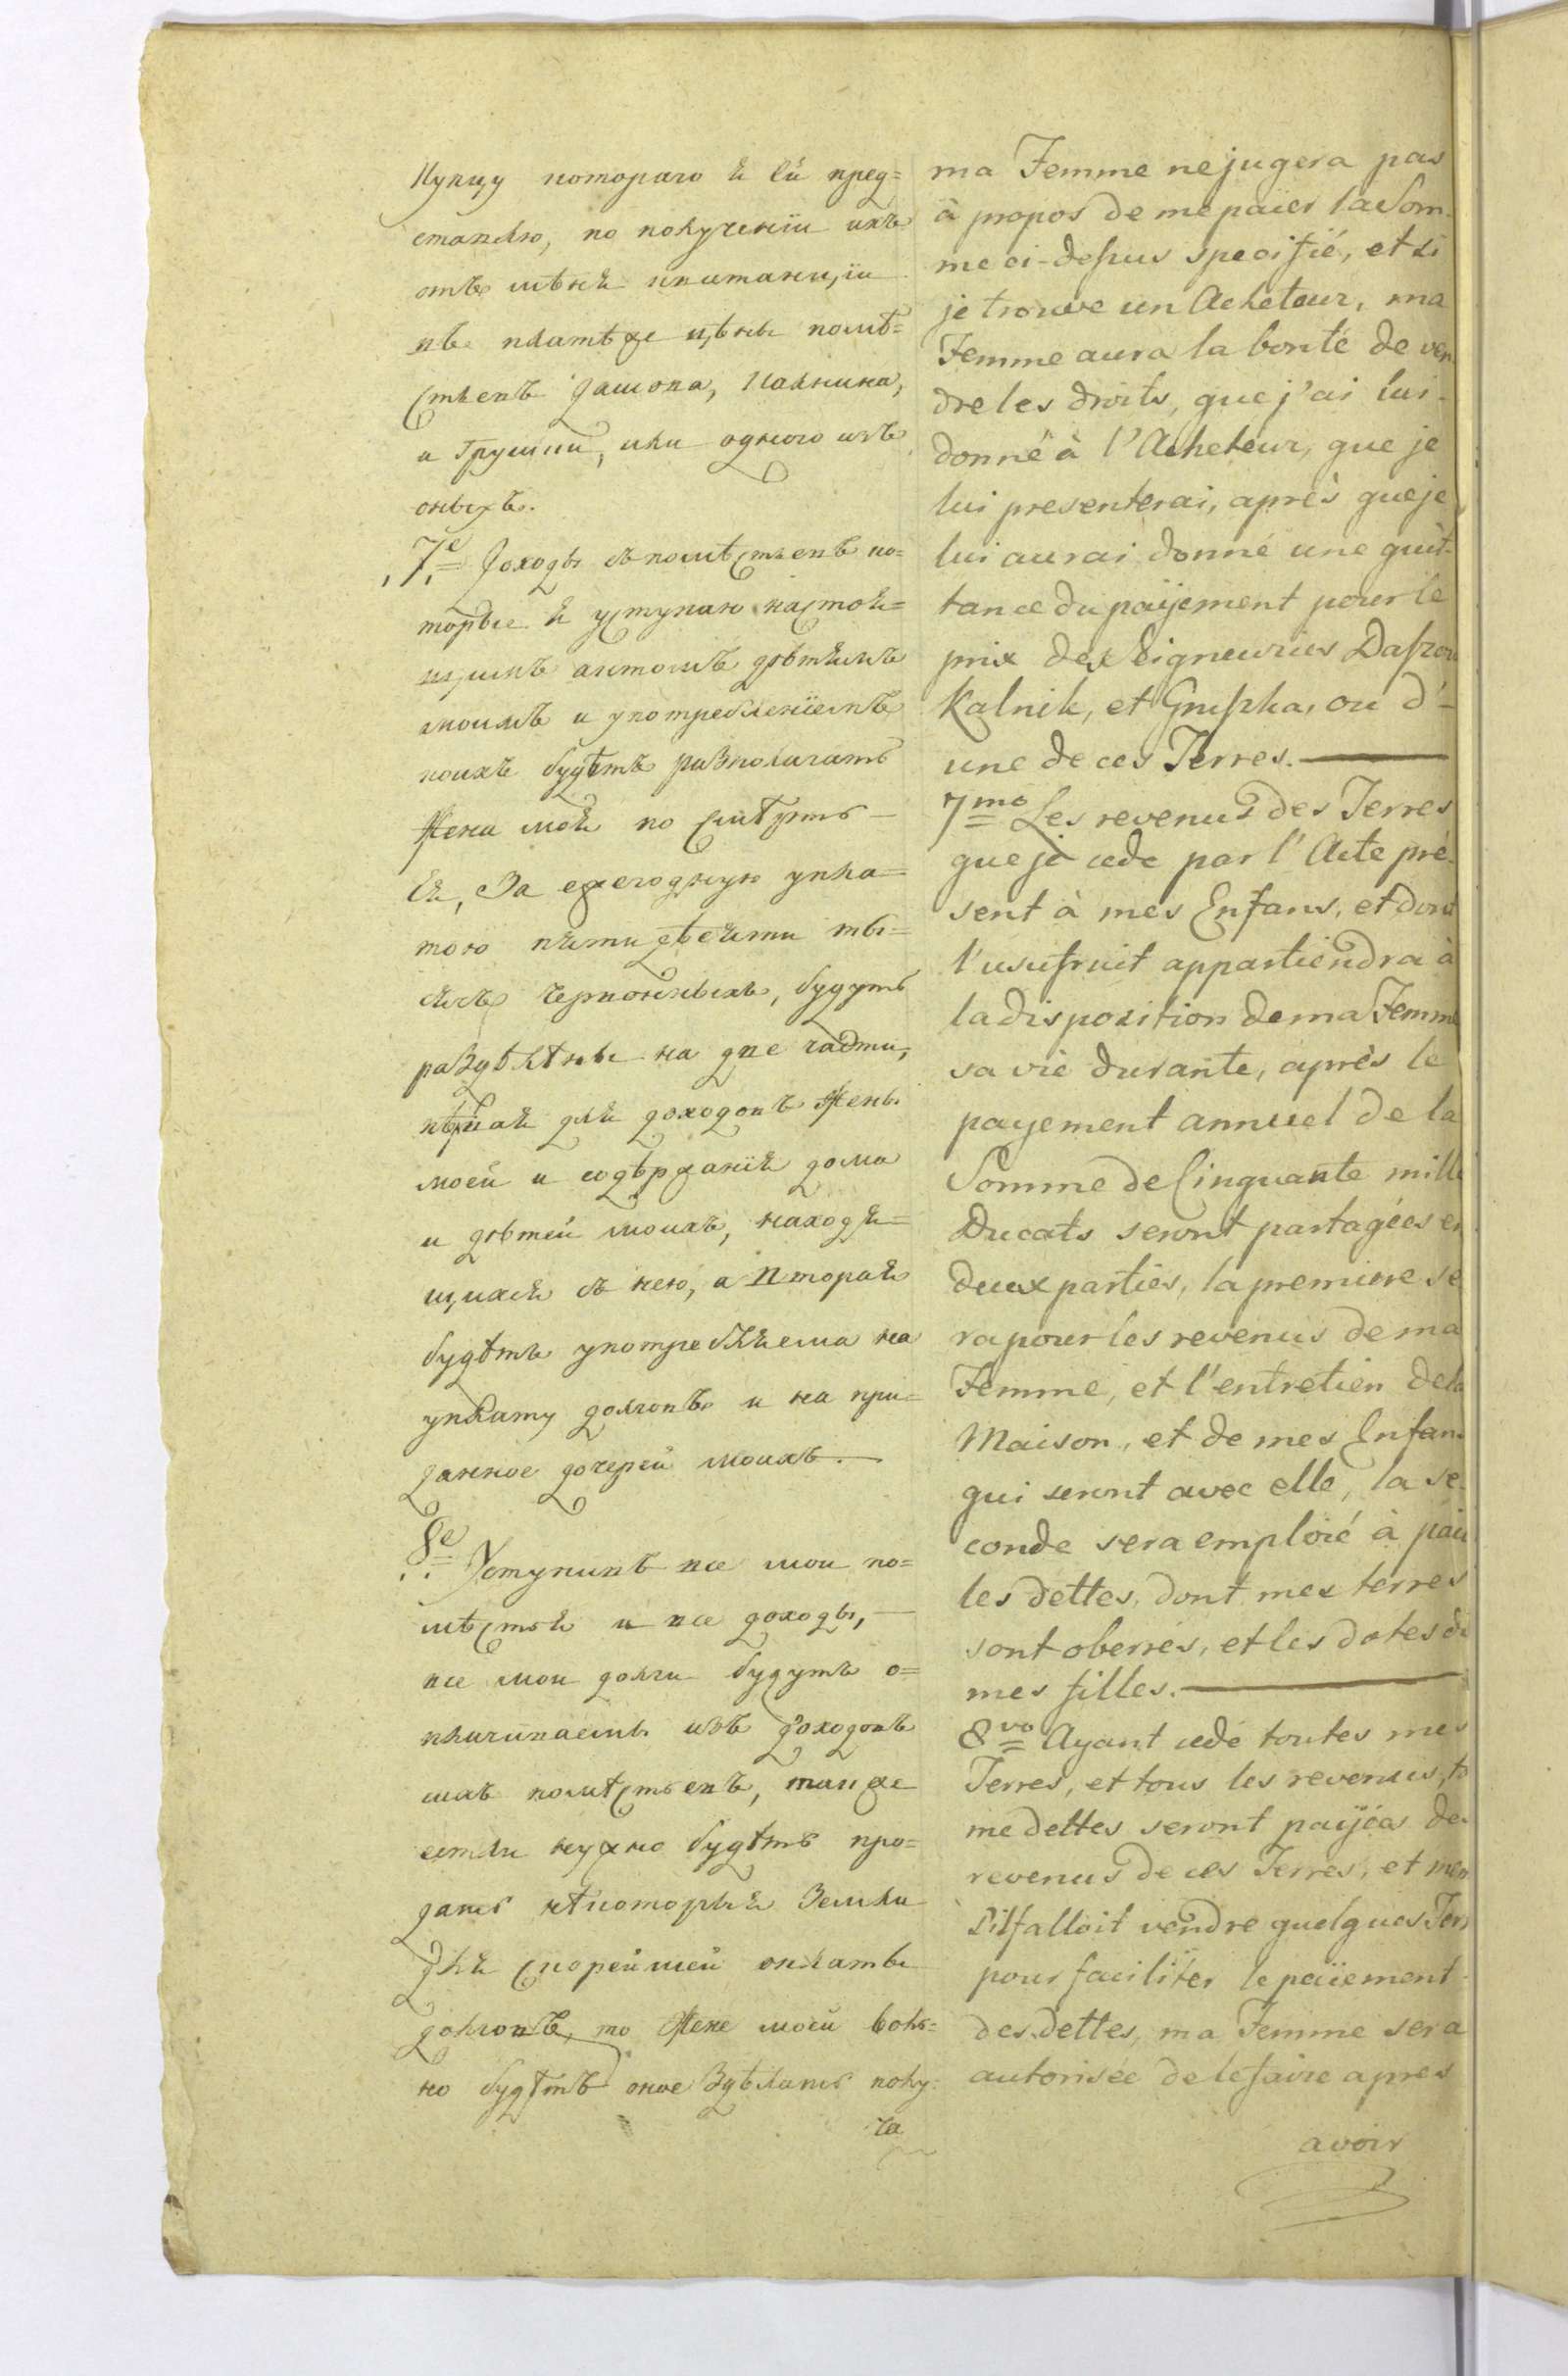 Купцу котораго я ей пред=
ставлю, по полученїи ихъ
отъ мѣня квитанцїи
въ платѣже цѣны помѣ=
стьевъ Дашова, Кальника,
и Грушки, или одного изъ
оныхъ.
7е= Доходы съ помѣстьевъ ко=
торые я уступаю настоя=
щимъ актомъ дѣтямъ
моимъ и употребленїемъ
коихъ будѣтъ располагать
Жена моя по смѣрть
Ея, За ежегодную упла=
тою пятидѣсяти ты=
сячъ червонныхъ, будутъ
раздѣлѣны на две части,
пѣрвая для доходовъ Жены
моей и содѣржанїя дома
и дѣтей моихъ, находя=
щихся съ нею, а вторая
будѣтъ употребляема на
уплату долговъ и на при=
данное дочерей моихъ.
8е= Уступивъ все мои по=
мѣстья и все доходы,
все мои долги будутъ о=
плачиваемы изъ доходовъ
ихъ помѣстьевъ, также
естли нужно будѣтъ про=
дать нѣкоторыя Земли
для скорейшей оплаты
долговъ, то Жене моей воль=
но будѣтъ оное Здѣлать полу=
ча
ma Femme ne jugera pas
à propos de me païer la Som-
me ci-deſsus specifié, et si
je trouve un Acheteur, ma
Femme aura la bonté de ven
dre les droits, que j'ai lui-
donné à l'Acheteur, que je
lui presenterai, après que je
lui aurai donné une quit-
tance du paÿement pour le
prix des Seigneuries Daſzow
Kalnik, et Gruſzka, ou d'-
une de ces Terres.
7mo= Les revenus des Terres
que je cede par l'Acte pré-
sent à mes Enfans, et dont
l'usufruit appartiendra à
la disposition de ma Femme
sa vie durante, après le
payement annuel de la
Somme de Cinquante mille
Ducats seront partagées en
deux parties, la premiere se
ra pour les revenus de ma
Femme, et l'entretien de la
Maison, et de mes Enfans
qui seront avec elle, la se-
conde sera emploié à païe
les dettes, dont mes terres
sont oberrés, et les dotes de
mes filles.
8vo= Ayant cedé toutes mes
Terres, et tous les revenus, to
me dettes seront paÿées des
revenus de ces Terres, et mem
s'il falloit vendre quelques Terr
pour faciliter le païement
des dettes, ma Femme sera
autorisée de le faire apres
avoir